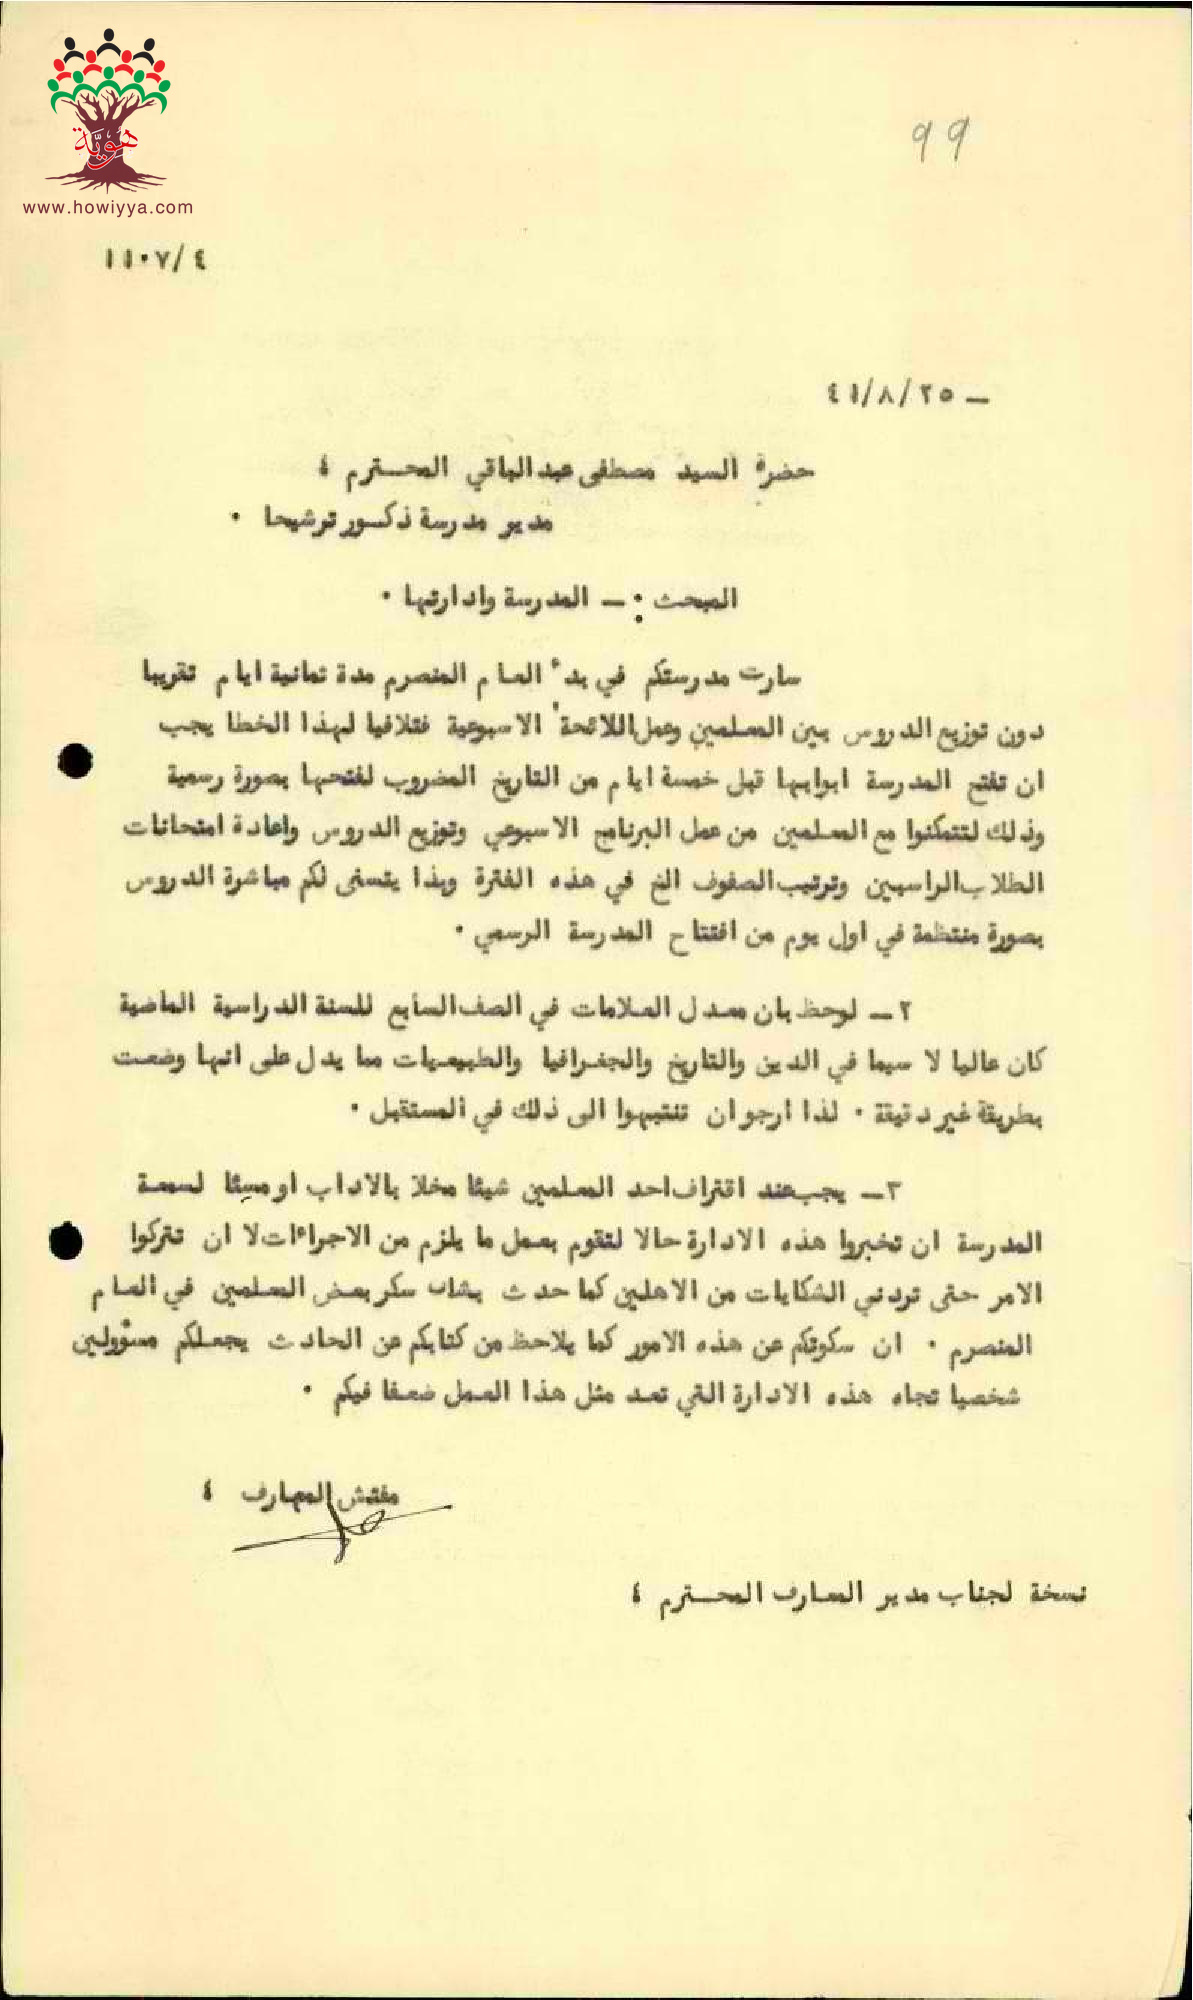 هوية
www.howiyya.com
٩٩
١١٠٧/٤
٤١/٨/٢٥ ـ
حضرة السيد مصطفى عبد الباقي المحترم ،
مدير مدرسة ذكور ترشيحا ٠
المبحث : ـ المدرسة وادارتها ٠
سارت مدرستكم في بدء العام المنصرم مدة ثمانية ايام تقريبا
دون توزيع الدروس بين المعلمين وعمل اللائحة الاسبوعية فتلافيا لهذا الخطا يجب
ان تفتح المدرسة ابوابها قبل خمسة ايام من التاريخ المضروب لفتحها بصورة رسمية
وذلك لتتمكنوا مع المعلمين من عمل البرنامج الاسبوعي وتوزيع الدروس واعادة امتحانات
الطلاب الراسبين وترتيب الصفوف الخ في هذه الفترة وبذا يتسنى لكم مباشرة الدروس
بصورة منتظمة في اول يوم من افتتاح المدرسة الرسمي ٠
٢ ـ لوحظ بان معدل العلامات في الصف السابع للسنة الدراسية الماضية
كان عاليا لا سيما في الدين والتاريخ والجغرافيا والطبيعيات مما يدل على انها وضعت
بطريقة غير دقيقة ٠ لذا ارجو ان تنتبهوا الى ذلك في المستقبل ٠
٣ ـ يجب عند اقتراف احد المعلمين شيئا مخلا بالاداب او مسيئا لسمعة
المدرسة ان تخبروا هذه الادارة حالا لتقوم بعمل ما يلزم من الاجراءات لا ان تتركوا
الامر حتى تردني الشكايات من الاهلين كما حدث بشان سكر بعض المعلمين في العام
المنصرم ٠ ان سكوتكم عن هذه الامور كما يلاحظ من كتابكم عن الحادث يجعلكم مسؤولين
شخصيا تجاه هذه الادارة التي تعد مثل هذا العمل ضعفا فيكم ٠
مفتش المعارف ،
نسخة لجناب مدير المعارف المحترم ،